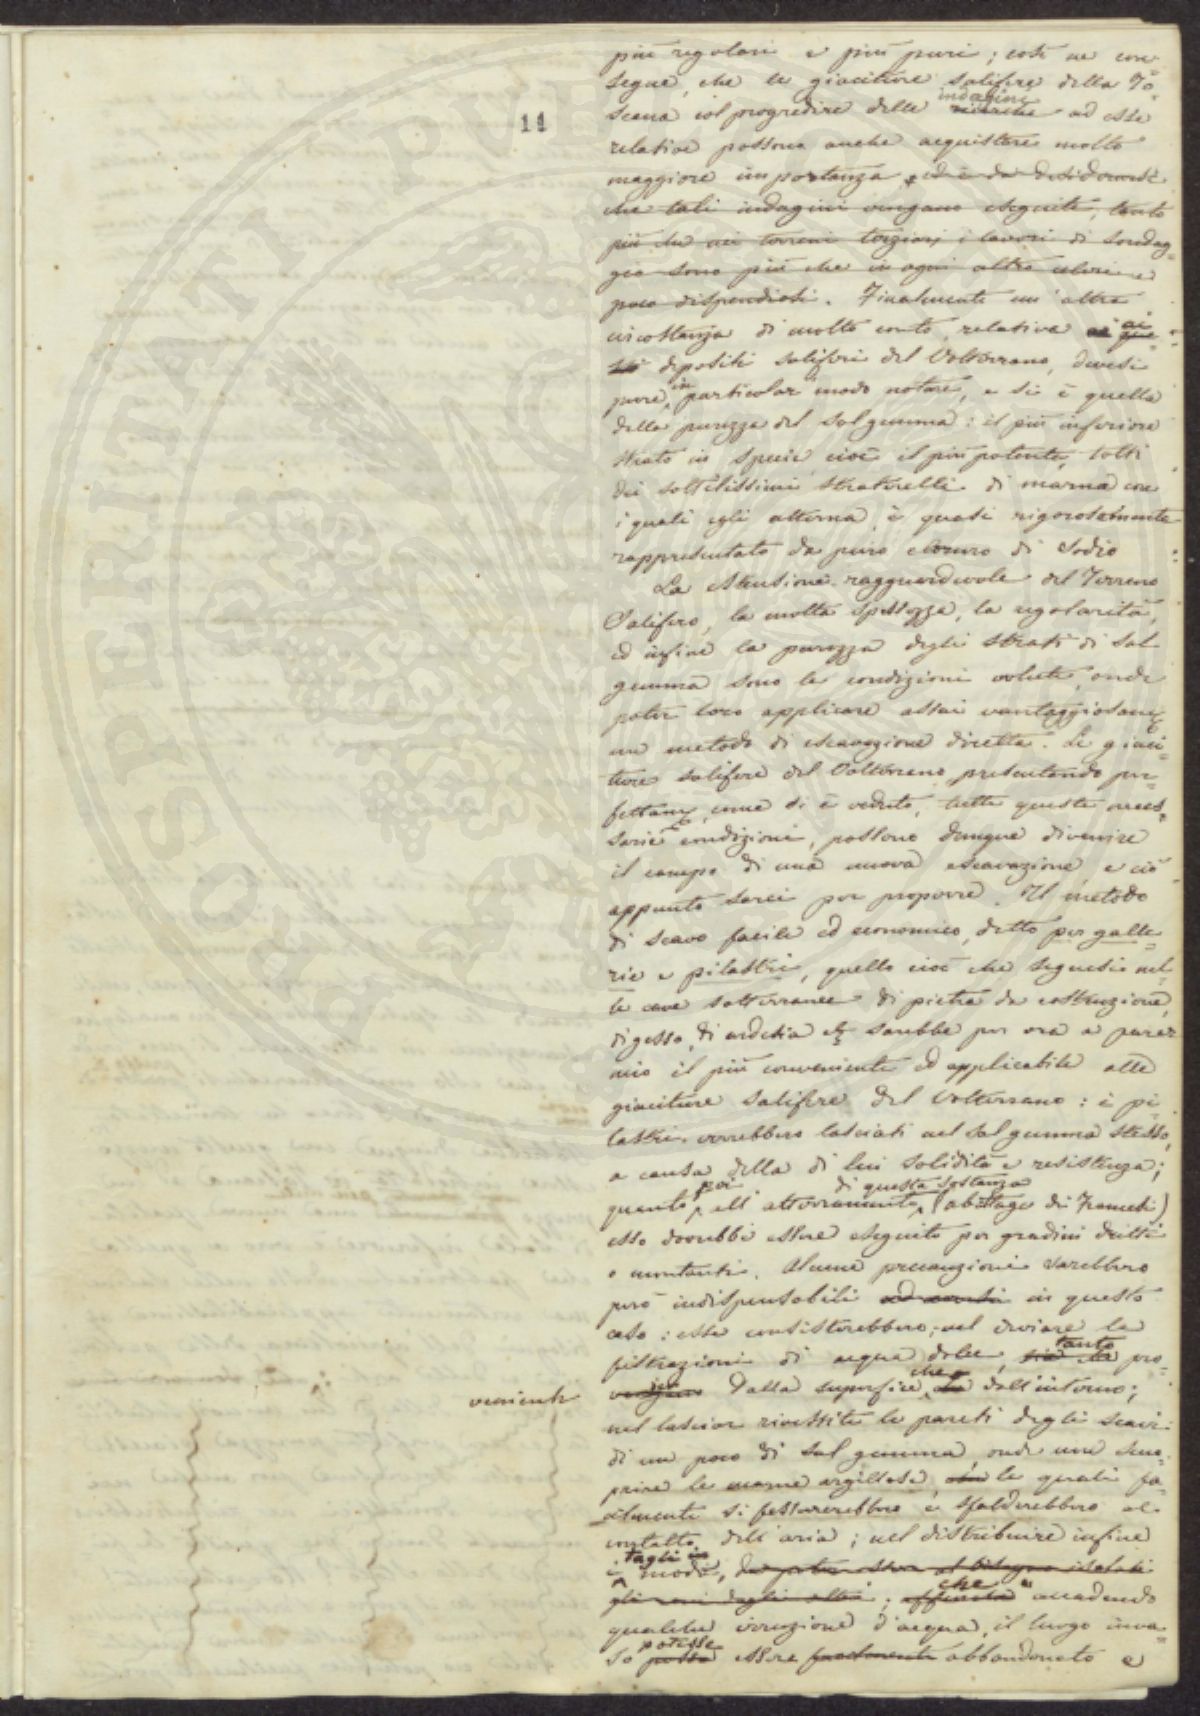 11
più regolari e più puri; così ne con=
segue, che le giaciture salifere della To=
scana col progredire delle indagini ricerche ad esse
relative possono anche acquistare molta
maggiore importanza, ed è da desiderarsi
che tali indagini vengano eseguite, tanto
più che nei terreni terziarj i lavori di sondag=
gio sono più che in ogni altro celeri e
poco dispendiosi. Finalmente un'altra
circostanza di molto conto, relativa ai que=
sti depositi saliferi del Volterrano, devesi
pure, in particolar modo notare, e si è quella
della purezza del sal gemma: il più inferiore
strato in specie, cioè il più potente, tolti
dei sottilissimi straterelli di marna con
i quali egli alterna, è quasi rigorosamente
rappresentato da puro cloruro di Sodio
La estensione ragguardevole del Terreno
Salifero, la molta spessezza, la regolarità,
ed infine la purezza degli strati di sal
gemma sono le condizioni volute, onde
poter loro applicare assai vantaggiosamte
un metodo di escavazione diretta. Le giaci=
ture salifere del Volterrano presentando per=
fettamte, come si è veduto, tutte queste neces=
sarie condizioni, possono dunque divenire
il campo di una nuova escavazione, e ciò
appunto sarei per proporre. Il metodo
di scavo facile ed economico, detto per galle=
rie e pilastri, quello cioè che seguesi nel=
le cave sotterranee di pietra da costruzione,
di gesso, di ardesia ec sarebbe per ora a parer
mio il più conveniente ed applicabile alle
giaciture salifere del Volterrano: i pi=
lastri verrebbero lasciati nel sal gemma stesso,
a causa della di lui solidità e resistenza;
quanto poi all'atterramento di questa sostanza (abattage dei Francesi)
esso dovrebbe essere eseguito per gradini dritti
o montanti. Alcune precauzioni sarebbero
però indispensabili in questo
caso: esse consisterebbero; nel deviare le
filtrazioni di acqua dolce, tanto pro=
venienti
dalla superficie, che dall'intorno;
nel lasciar rivestite le pareti degli scavi
di un poco di sal gemma, onde non sco=
prire le marne argillose, le quali fa=
cilmente si fessurerebbero e sfalderebbero al
contatto dell'aria; nel distribuire infine
i tagli in modo, da poter esser al bisogno isolati
gli uni dagli altri; che accadendo
qualche irruzione d'acqua, il luogo inva=
so potesse possa essere facilmente abbandonato e